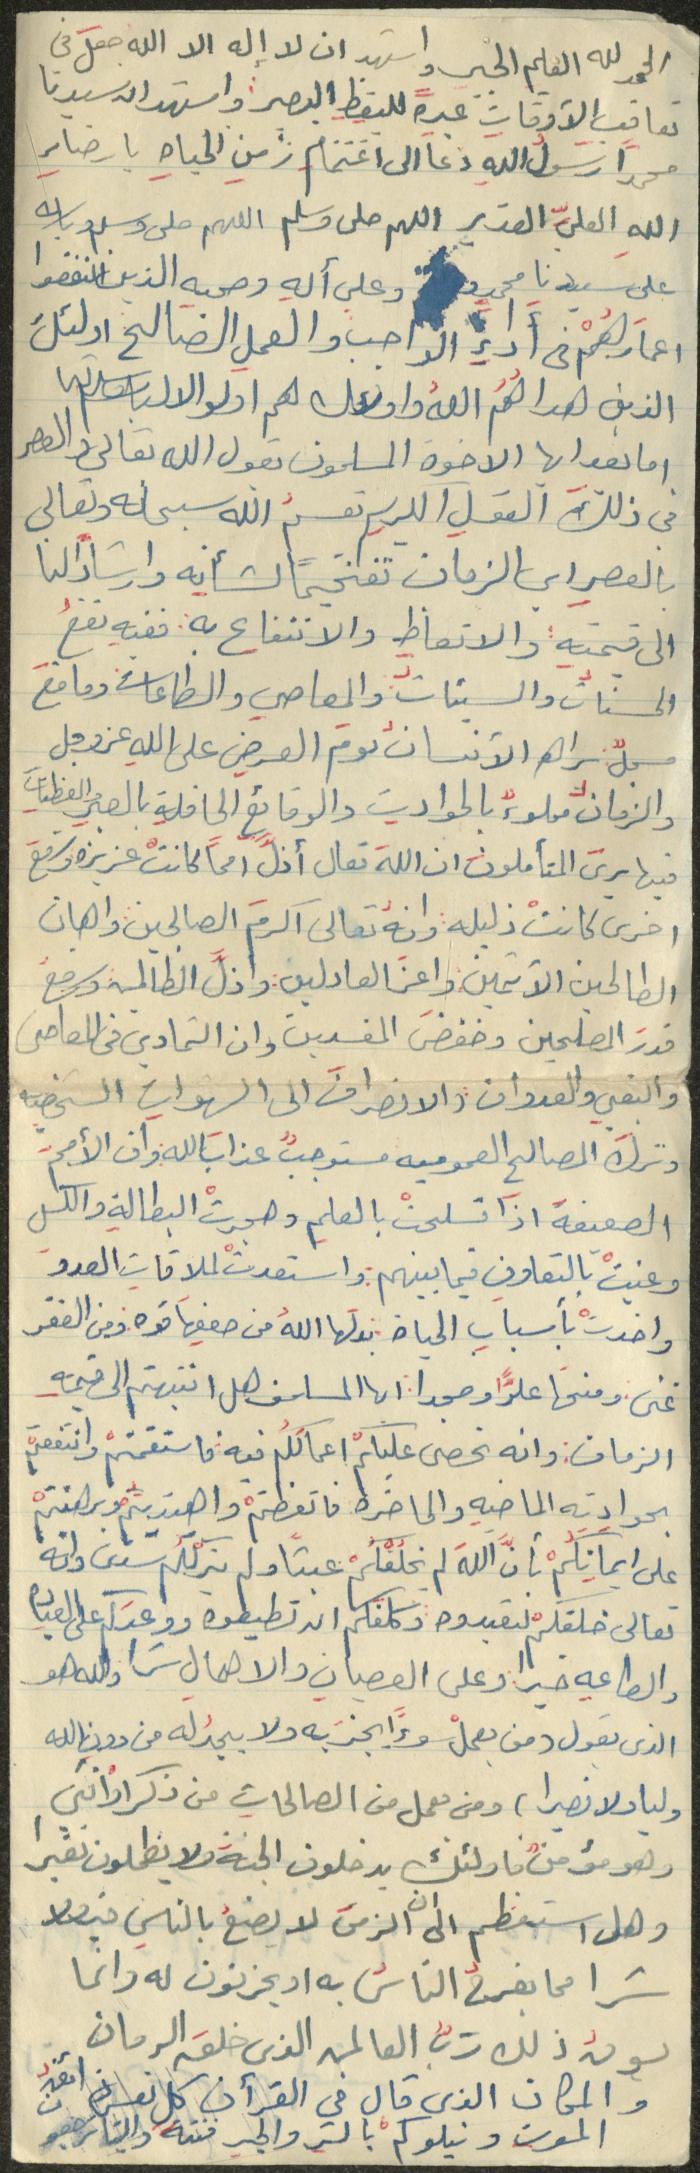 الحمد لله العليم الخبير واشهد ان لا إله الا الله جعل فى
تعاقبِ الآوقاتِ عبرةً لليقظِ البصير واشهد ان سيدنا
محمداً رسولُ اللهِ دعا الى اغتنامِ زمنِ الحياهِ بارضاء
اللهِ العليّ القدير اللهم صلى وسلم اللهم صلى وسلم وبارك
على سيدنا محمد وعلى أله وصحبه الذين انفقوا
اعمارهُمْ فى أداءِ الواجب والعملِ الصالح اولئك
الذين هداهُمُ اللهُ واولئك هم اولوالالباب
اما بعد ايها الاخوة المسلمون يقول الله تعالى والعصر
فى ذلك القولِ الكريم يقسمُ الله سبحانه وتعالى
بالعصرِ اي الزمان تفخيمًا لشأنِه وارشادًا لنا
الى قيمتِهِ والاتعاظِ والانتفاعِ به ففيه تقعُ
الحسناتُ والسيئاتُ والمعاصى والطاعات وما يقع
مسجلٌ يراه الأنسانُ يومَ العرضِ على اللهِ عز وجل
والزمانُ مملوءٌ بالحوادثِ والوقائعِ الحافلةِ بالعبرِ والعظاتِ
فيها يرى المتأملون ان اللهَ تعالى أذلَّ امماً كانتْ عزيزه ورفعَ
اخرى كانتْ ذليله وانهُ تعالى اكرمَ الصالحين واهان
الطالحين الآثمين واعزَ العادلين واذلَّ الظالمين ورفعَ
قدرَ المصلحين وخفضَ المفسدين وان التمادي فى المعاصى
والبغي والعدوان والانصراف الى الشهواتِ الشخصيه
وتركَ المصالح العموميه مستوجبٌ عذابَ الله وان الأممَ
الضعيفةَ اذا تسلحتْ بالعلمِ وهجرتْ البطالةَ والكسل
وعنيتْ بالتعاونِ فيما بينهم واستعدتْ لملاقاتِ العدو
واخذتْ بأسبابِ الحياة بدلها اللهُ من ضعفِها قوه ومن الفقر
غنى ومنحها علوًا ومجدا ايها المسلمون هل انتبهتم الى قيمةِ
الزمان وانه تحصى عليكمْ اعمالكُم فيه فاستقمتمْ وانتفعتمْ
بحوادثِه الماضيه والحاضره فاتعظتمْ واهتديتُمْ وبرهنتمْ
على ايمانِكُمْ بأنَّ اللهَ لم يخلُقْكُمْ عبثًا ولم يتركْكُم سدى وانه
تعالى خلقكمْ لتعبدوه وكلفكم ان تطيعوه ووعدكم على العباده
والطاعه خيرا وعلى العصيانِ والاهمالِ شرا والله هو
الذى يقول ( من يعملْ سوءًا يجزبه ولا يجدْ له من دونِ الله
وليا ولا نصيرا ) ومن يعمل من الصالحاتِ من ذكر اوأنثى
وهو مؤمنٌ فاولئك يدخلون الجنةَ ولا يظلمون نقيرا
وهل استيقظتم الى ان الزمن لا يصنعُ بالناسِ خيرا ولا
شرا مما يفرحُ الناسُ به او يحزنون له وانما
يسوقُ ذلك ربُّ العالمين الذى خلقَ الزمان
والمكان الذى قال فى القرآن كل نفس ذائقةُ
الموت ونبلوكمْ بالشر والخير فتنة والينا ترجعون